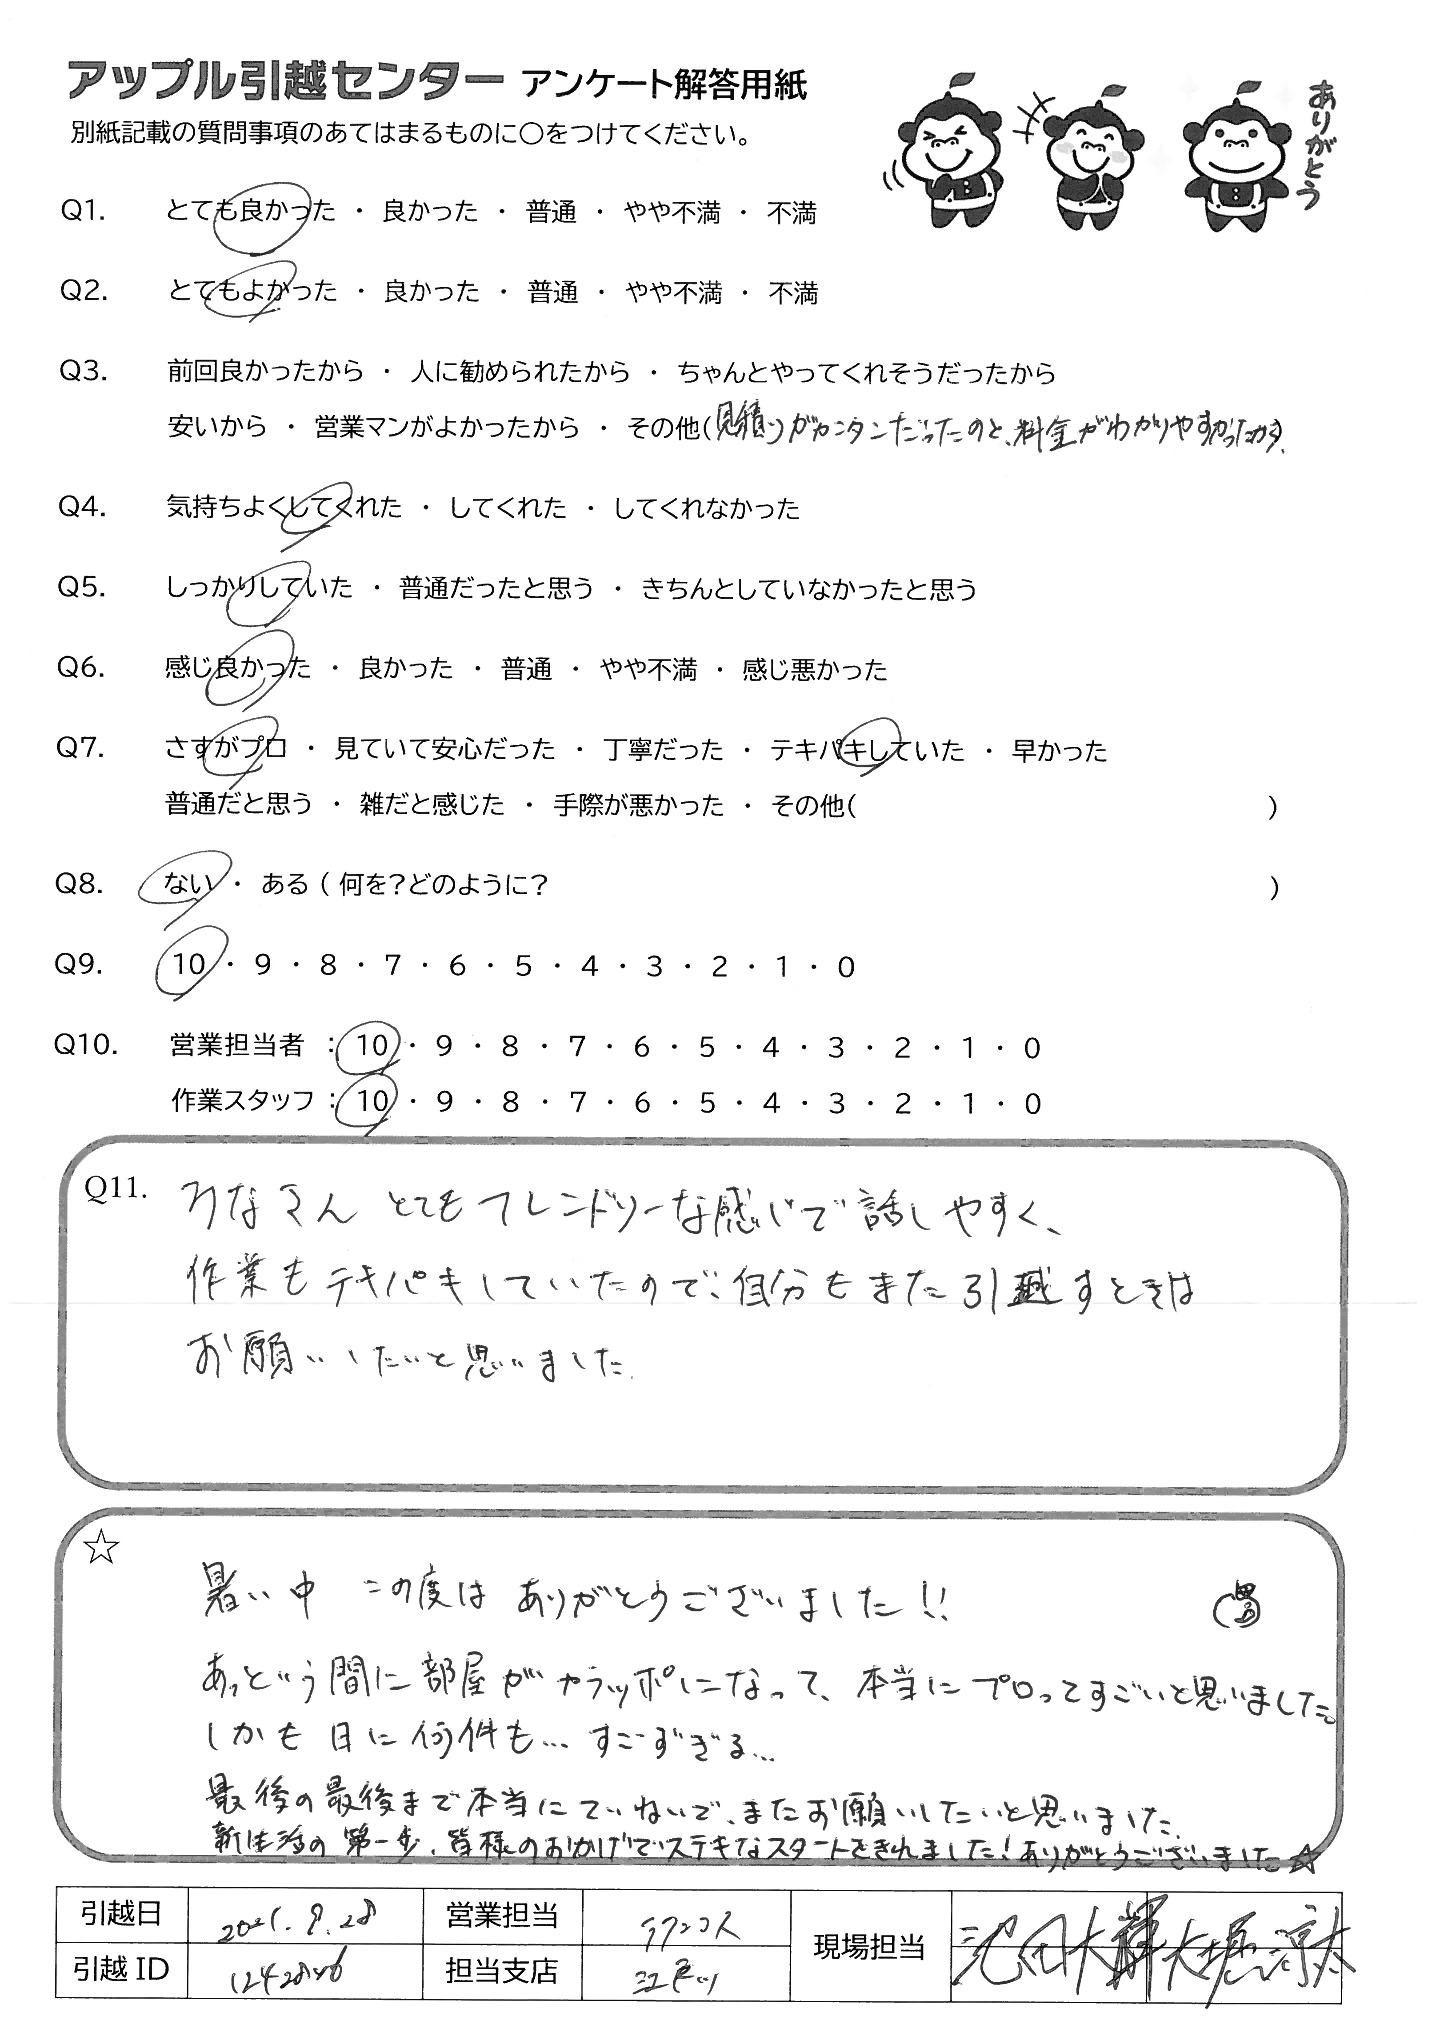 アップル引越センター アンケート解答用紙
ありがとう
別紙記載の質問事項のあてはまるものに○をつけてください。
Q1. とても良かった ・ 良かった ・ 普通 ・ やや不満 ・ 不満
Q2. とてもよかった ・ 良かった ・ 普通 ・ やや不満 ・ 不満
Q3. 前回良かったから ・ 人に勧められたから ・ ちゃんとやってくれそうだったから
安いから ・ 営業マンがよかったから ・ その他(見積りがカンタンだったのと、料金がわかりやすかったから
Q4. 気持ちよくしてくれた ・ してくれた ・ してくれなかった
Q5. しっかりしていた ・ 普通だったと思う ・ きちんとしていなかったと思う
Q6. 感じ良かった ・ 良かった ・ 普通 ・ やや不満 ・ 感じ悪かった
Q7. さすがプロ ・ 見ていて安心だった ・ 丁寧だった ・ テキパキしていた ・ 早かった
普通だと思う ・ 雑だと感じた ・ 手際が悪かった ・ その他( )
Q8. ない ・ ある ( 何を?どのように? )
Q9. 10 ・ 9 ・ 8 ・ 7 ・ 6 ・ 5 ・ 4 ・ 3 ・ 2 ・ 1 ・ 0
Q10. 営業担当者 : 10 ・ 9 ・ 8 ・ 7 ・ 6 ・ 5 ・ 4 ・ 3 ・ 2 ・ 1 ・ 0
作業スタッフ : 10 ・ 9 ・ 8 ・ 7 ・ 6 ・ 5 ・ 4 ・ 3 ・ 2 ・ 1 ・ 0
Q11. みなさん とてもフレンドリーな感じで話しやすく、
作業もテキパキしていたので、自分もまた引越すときは
お願いしたいと思いました.
☆
暑い中 この度は ありがとうございました!!
あっという間に部屋がカラッポになって、本当にプロってすごいと思いました。
しかも日に何件も… すごすぎる…
最後の最後まで本当にていねいで、またお願いしたいと思いました.
新生活の第一歩、皆様のおかげでステキなスタートをきれました!ありがとうございました☆
引越日 2021.9.28 営業担当 現場担当 池田大輝 大堀涼太
引越ID 担当支店 江戸川